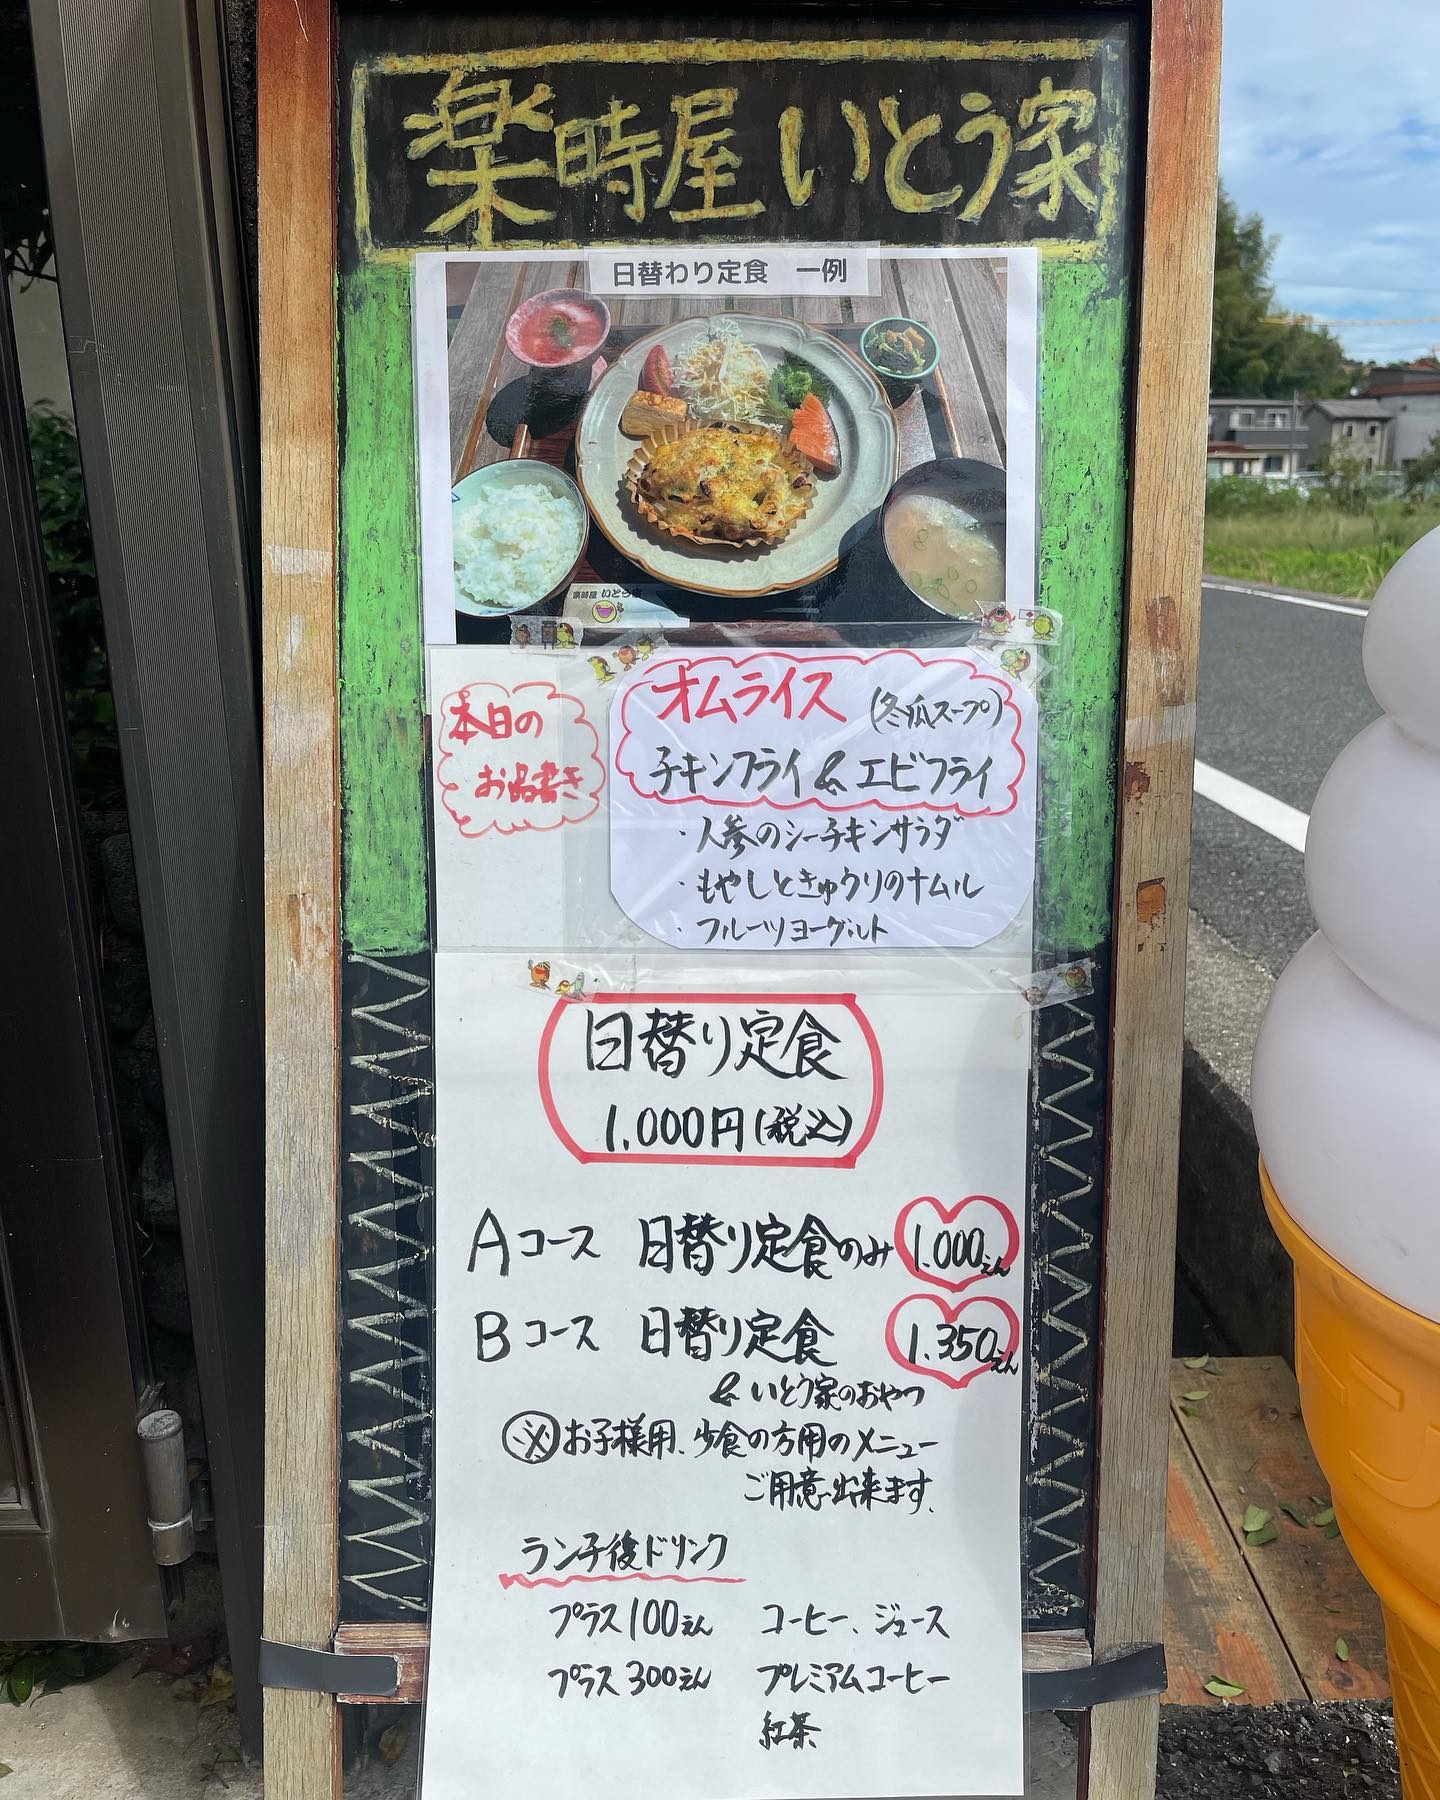 楽時屋 いとう家
日替わり定食 一例
楽時屋 いとう家
本日の
お品書き
オムライス (冬瓜スープ)
チキンフライ & エビフライ
・人参のシーチキンサラダ
・もやしときゅうりのナムル
・フルーツヨーグルト
日替り定食
1,000円(税込)
Aコース 日替り定食のみ 1.000えん
Bコース 日替り定食 1.350えん
& いとう家のおやつ
※お子様用、少食の方用のメニュー
ご用意出来ます。
ランチ後ドリンク
プラス100えん コーヒー、ジュース
プラス300えん プレミアムコーヒー
紅茶